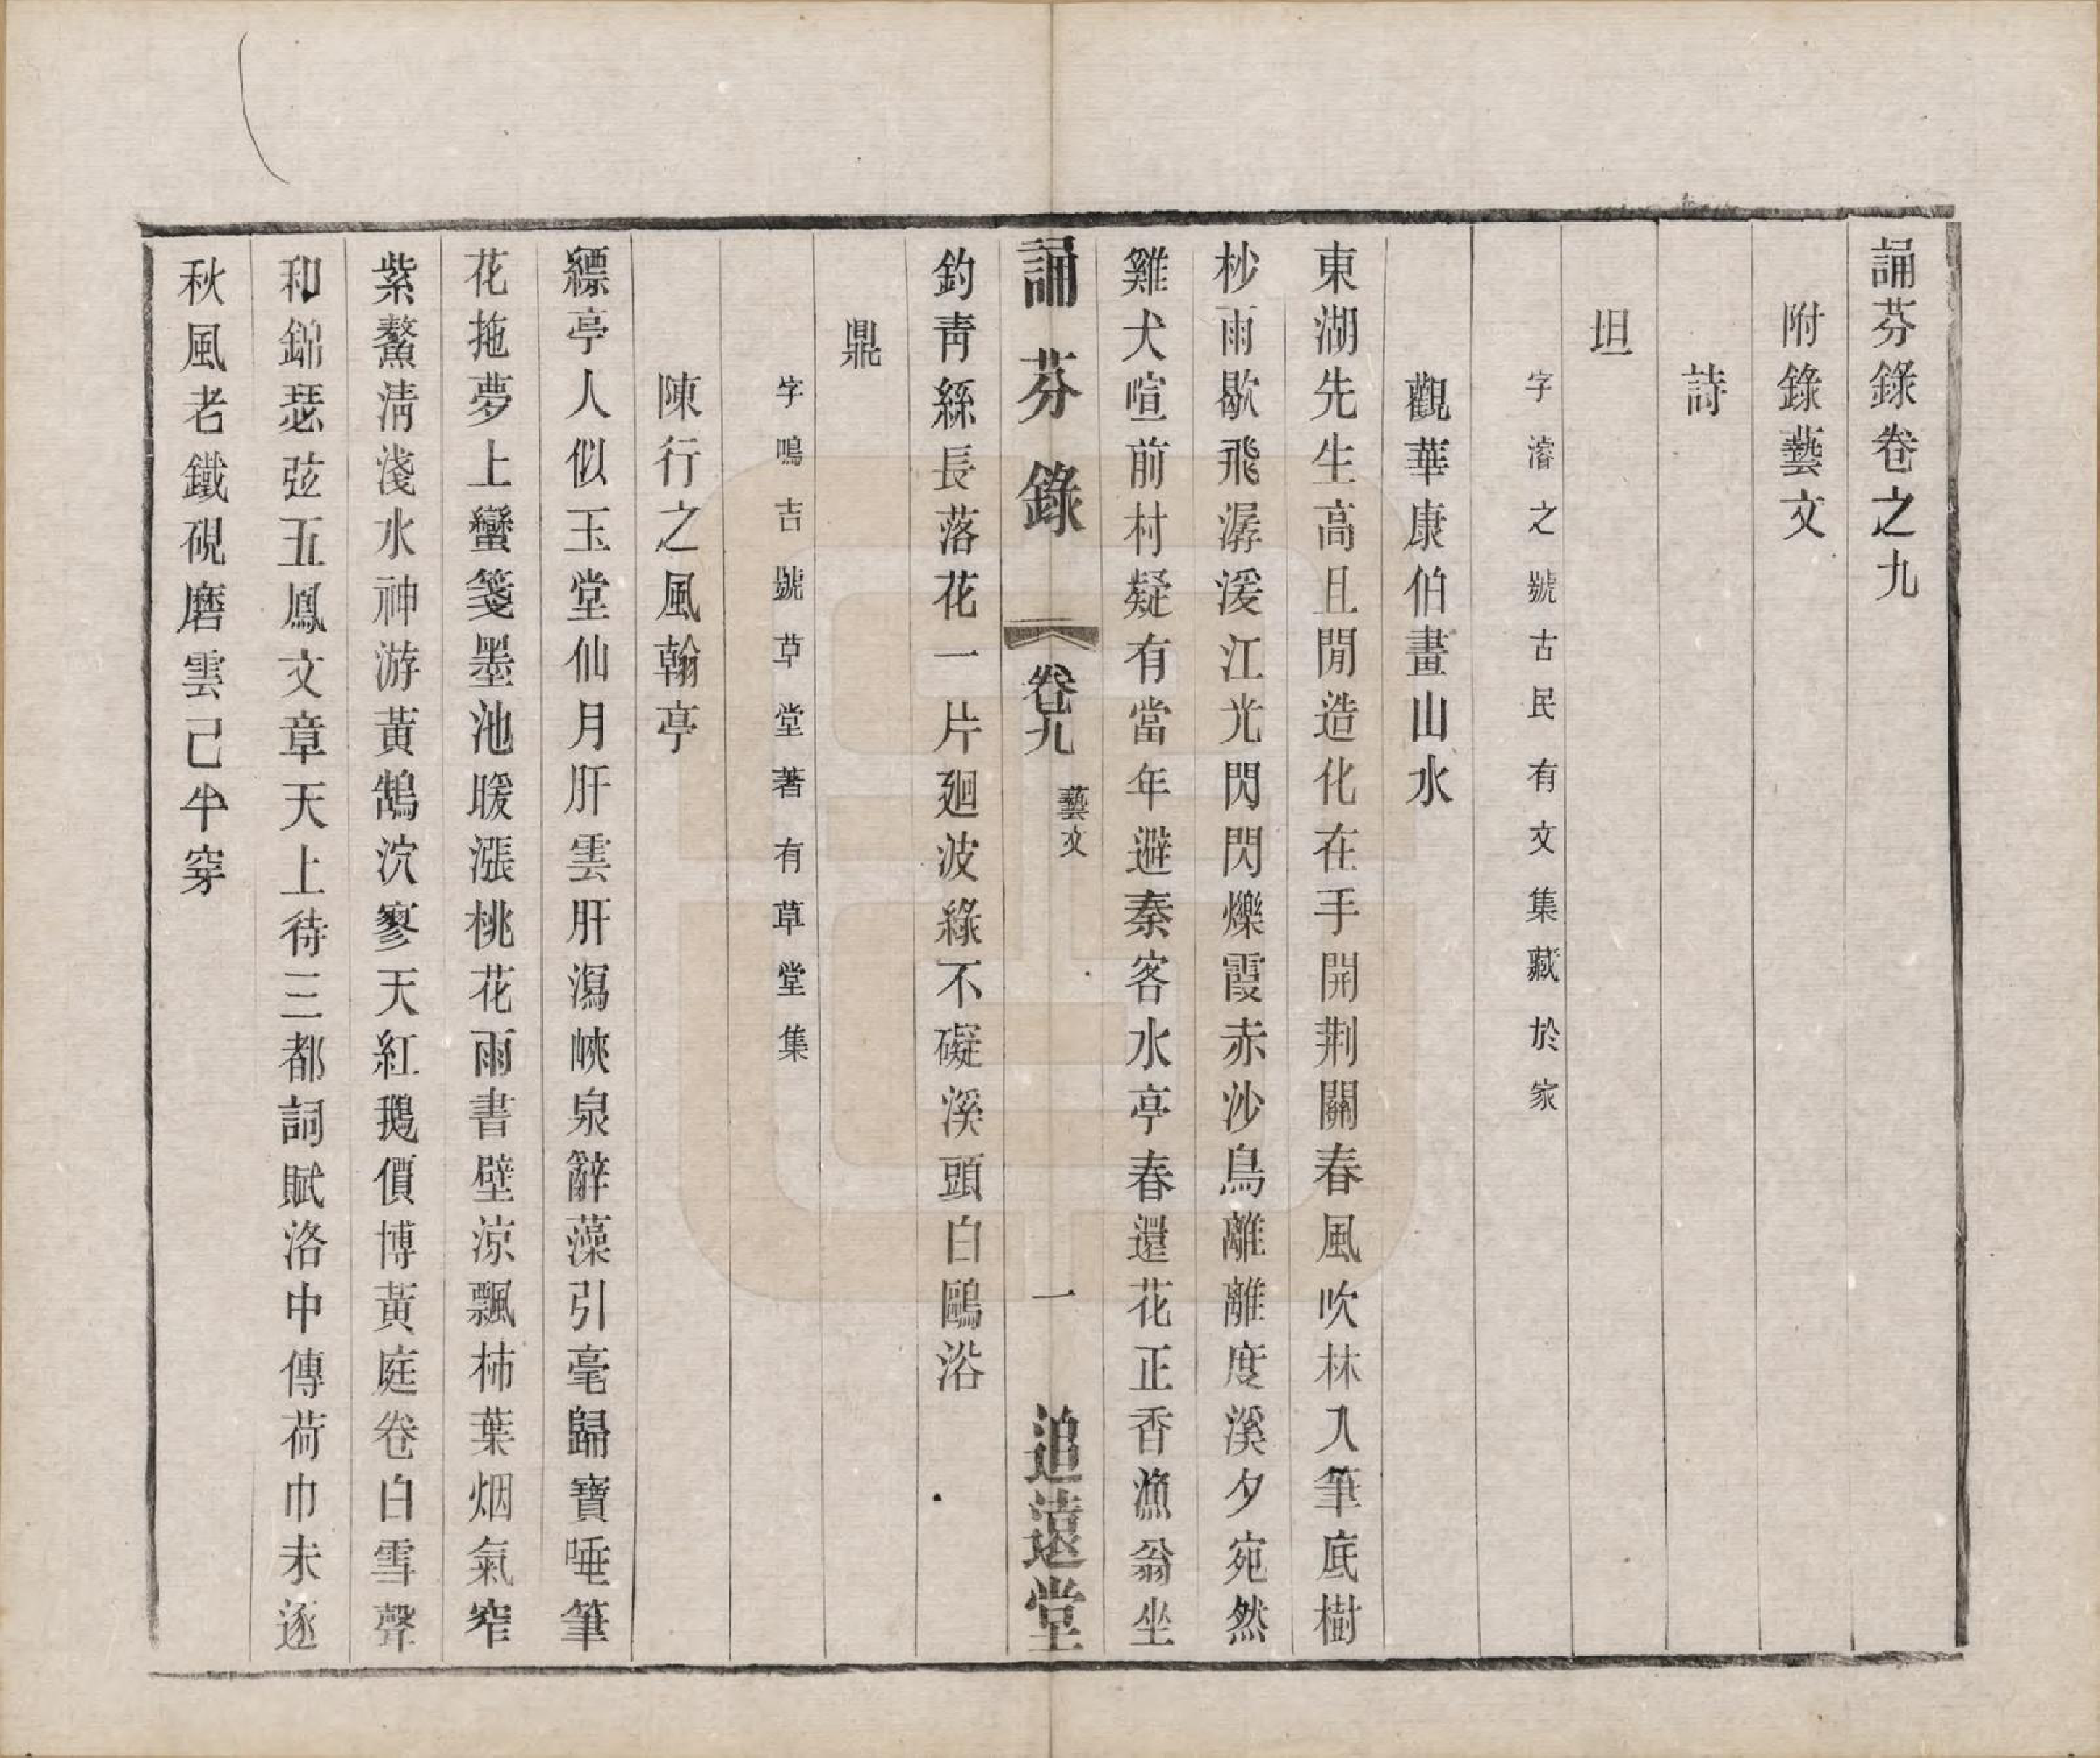 誦芬錄卷之九
附錄藝文
詩
坦
字濬之號古民有文集藏於家
觀華康伯畫山水
東湖先生高且閒造化在手開荆關春風吹林入筆底樹
杪雨歇飛潺湲江光閃閃爍霞赤沙鳥離離度溪夕宛然
雞犬喧前村疑有當年避秦客水亭春還花正香漁翁坐
誦芬錄
卷九
藝文
一
追遠堂
釣靑絲長落花一片廻波綠不礙溪頭白鷗浴
鼎
字鳴吉號草堂著有草堂集
陳行之風翰亭
縹亭人似玉堂仙月肝雲肝瀉峽泉辭藻引毫歸寶唾筆
花拖夢上蠻箋墨池暖漲桃花雨書壁涼飄柿葉烟氣窄
紫鰲淸淺水神游黃鵠泬寥天紅鵝價博黃庭卷白雪聲
和錦瑟弦五鳳文章天上待三都詞賦洛中傳荷巾未逐
秋風老鐵硯磨雲已半穿